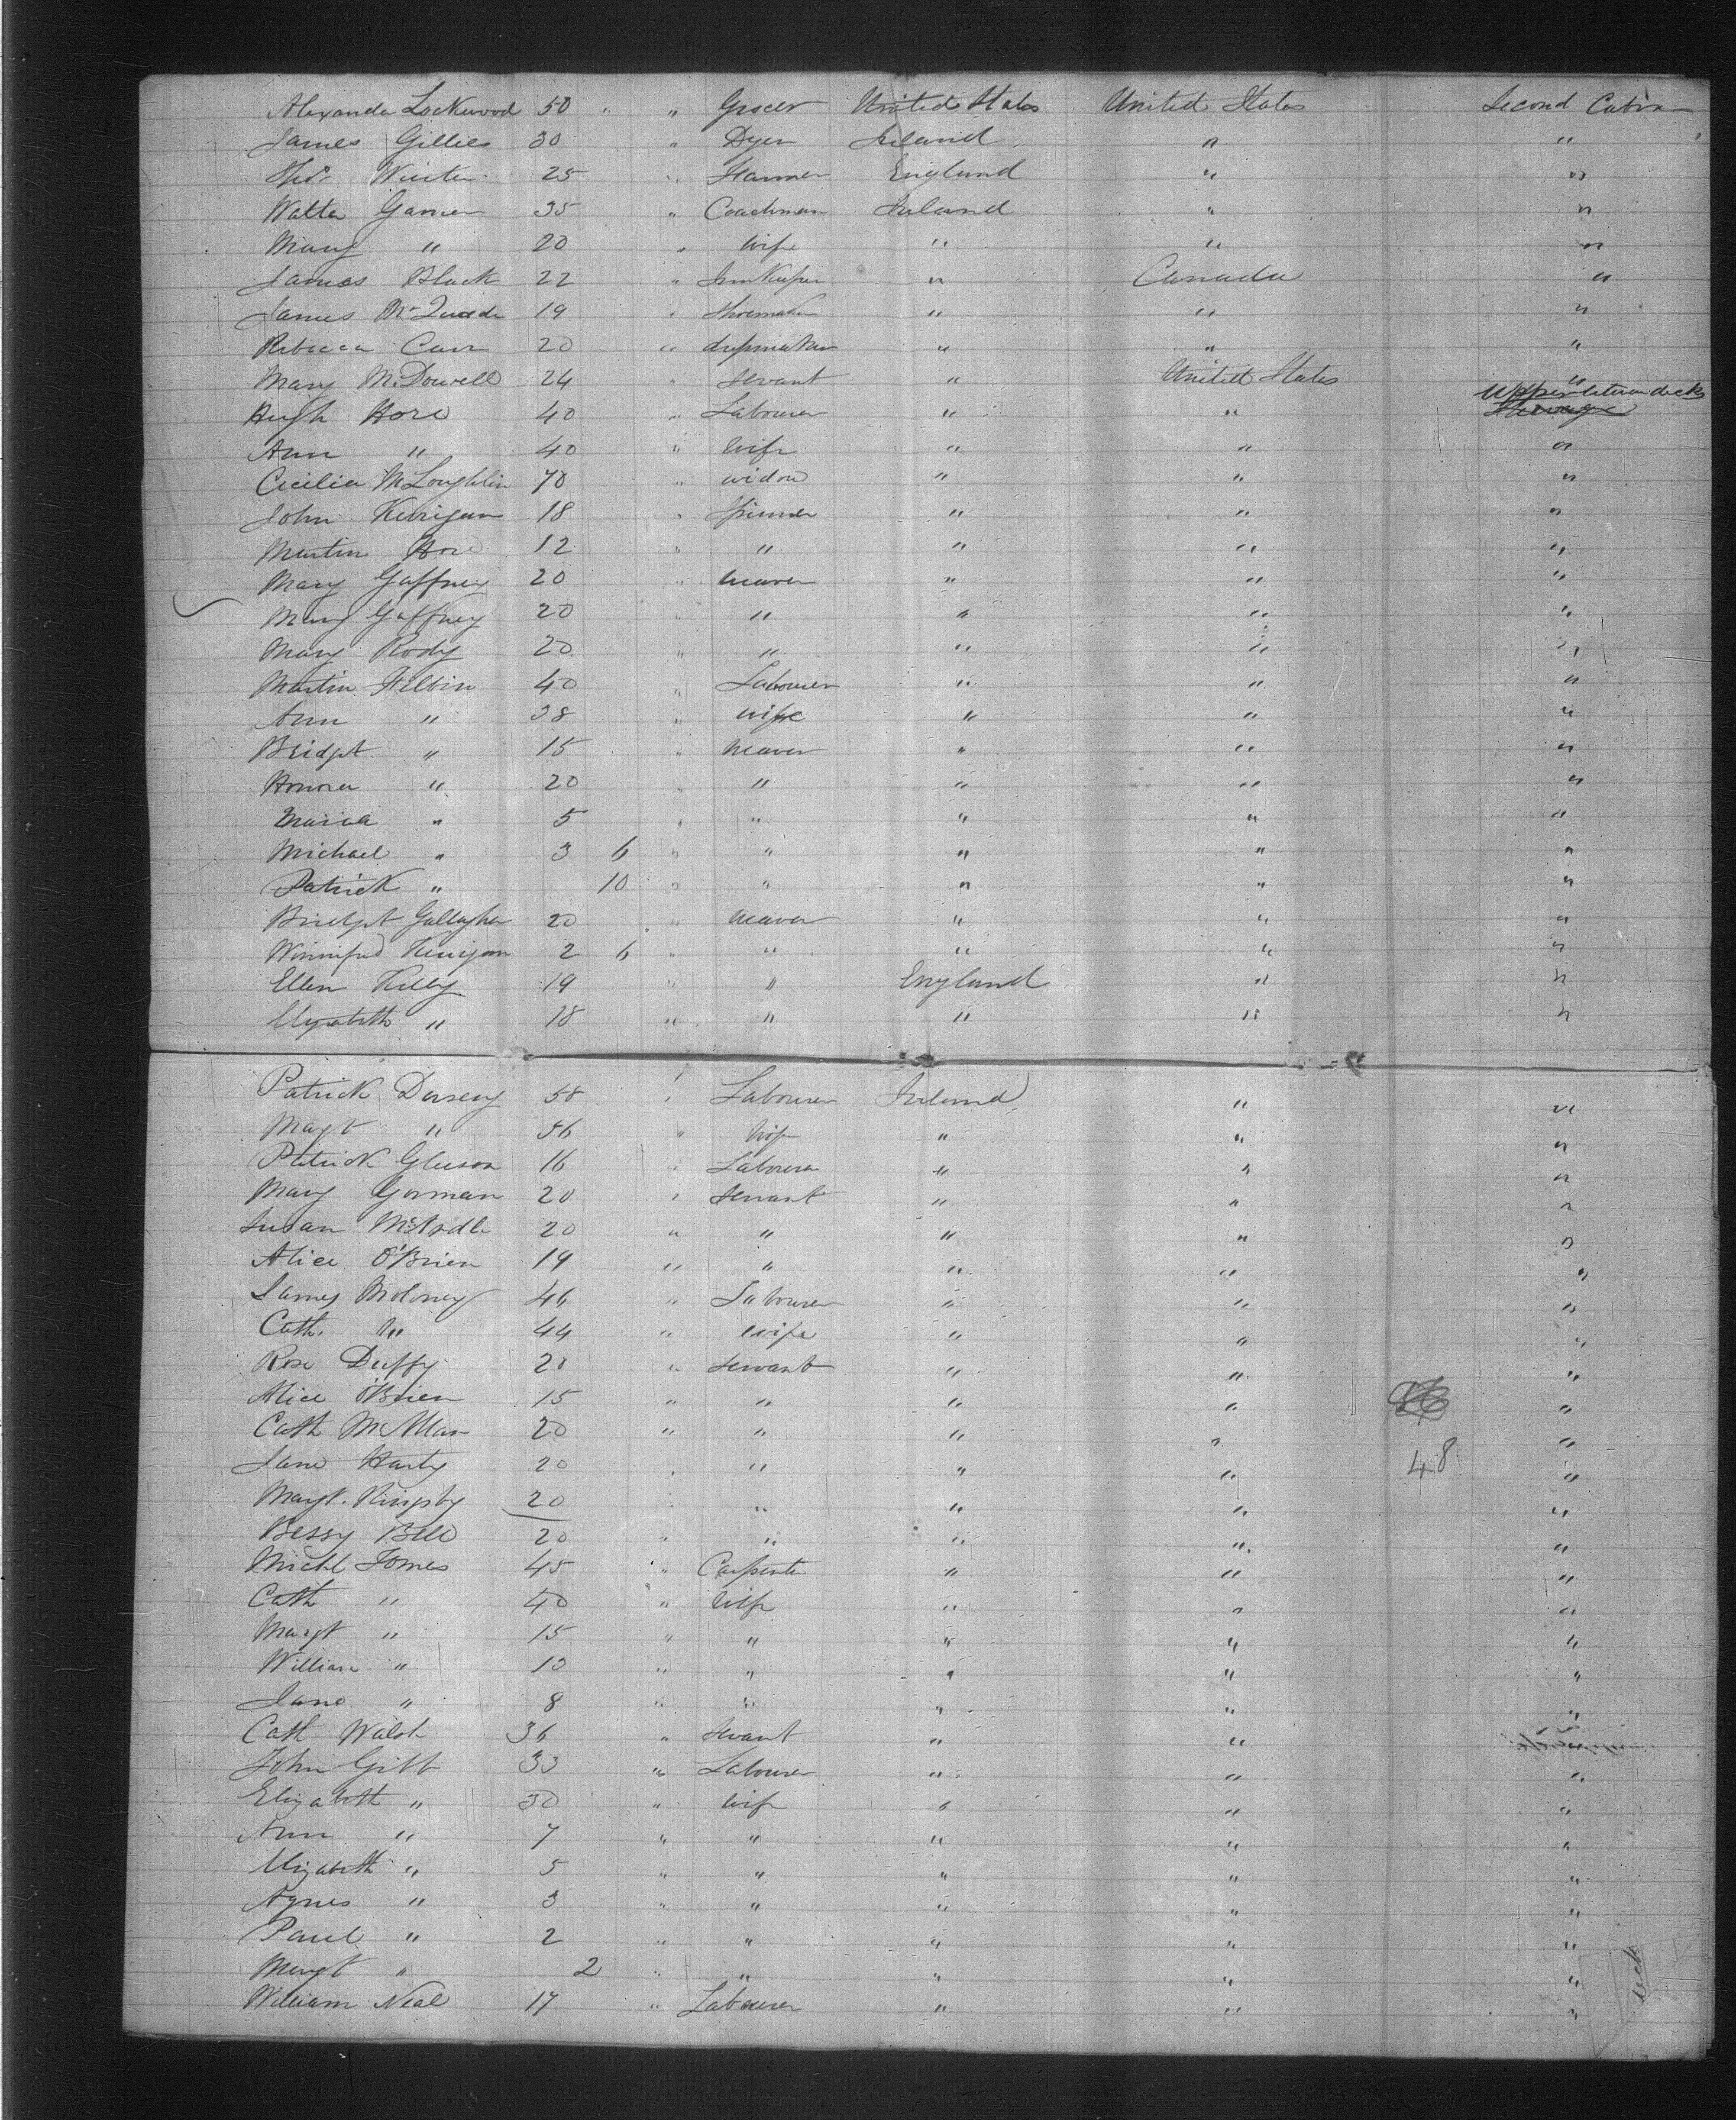 Alexander Lockwood 50 " " Grocer United States United States Second Cabin
James Gillies 30 " Dyer Ireland " "
Thos. Winter 25 " Farmer England " "
Walter Garner 35 " Coachman Ireland " "
Mary " 20 " Wife " " "
James Black 22 " InnKeeper " Canada "
James McQuade 19 " Shoemaker " " "
Rebecca Carr 20 " dressmaker " " "
Mary McDowell 24 " Servant " United States "
Hugh Hore 40 " Labourer " " Upper between decks
Ann " 40 " Wife " " "
Cicilia McLoughlin 70 " widow " " "
John Kerrigan 18 " Spinner " " "
Martin Hore 12 " " " " "
Mary Gaffney 20 " Weaver " " "
Mary Gaffney 20 " " " " "
Mary Rody 20 " " " " "
Martin Filbin 40 " Labourer " " "
Ann " 38 " Wife " " "
Bridget " 15 " Weaver " " "
Honora " 20 " " " " "
Maria " 5 " " " " "
Michael " 3 6 " " " " "
Patrick " 10 " " " " "
Bridget Gallagher 20 " Weaver " " "
Winnifred Kerrigan 2 6 " " " " "
Ellen Kelly 19 " " England " "
Elizabeth " 18 " " " " "
Patrick Dorsey 58 " Labourer Ireland " "
Margt " 56 " Wife " " "
Patrick Gleeson 16 " Labourer " " "
Mary Gorman 20 " Servant " " "
Susan McArdle 20 " " " " "
Alice O'Brien 19 " " " " "
James Moloney 46 " Labourer " " "
Cath. " 44 " Wife " " "
Rose Duffy 20 " Servant " " "
Alice O'Brien 15 " " " " "
Cath McAllar 20 " " " " "
Jane Harty 20 " " " " 48 "
Margt. Kingsby 20 " " " " "
Bessy Bell 20 " " " " "
Michl Tomes 45 " Carpenter " " "
Cath " 40 " Wife " " "
Margt " 15 " " " " "
William " 13 " " " " "
Jane " 8 " " " " "
Cath Walsh 36 " Servant " "
John Gibb 33 " Labourer " " "
Elizabeth " 30 " Wife " " "
Ann " 7 " " " " "
Elizabeth " 5 " " " " "
Agnes " 3 " " " " "
Paul " 2 " " " " "
Margt " 2 " " " " "
William Neal 17 " Labourer " " "
deck